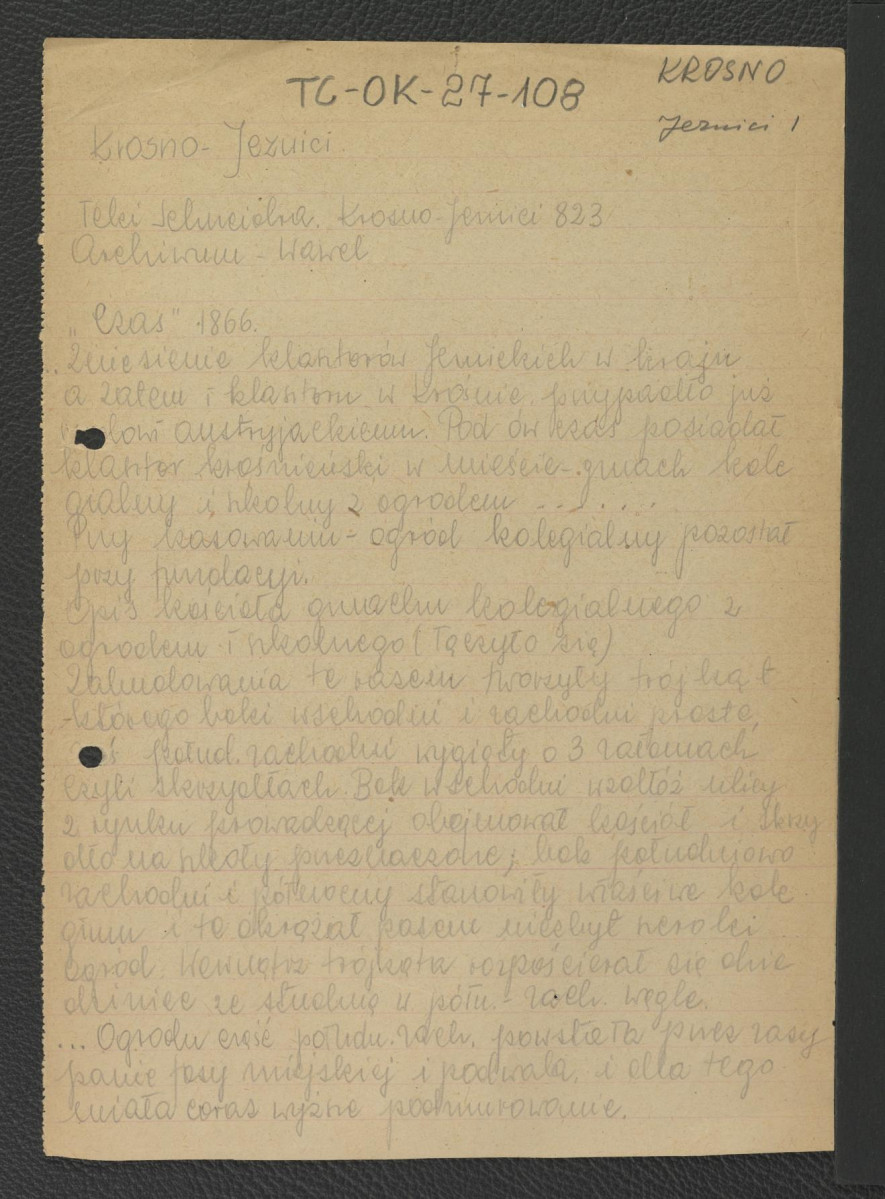 TC-OK-27-108
KROSNO
Jezuici 1
Krosno - Jezuici.
Teki Schneidra. Krosno - Jezuici 823
Archiwum - Wawel
"Czas" 1866.
.. Zniesienie klasztorów Jezuickich w kraju
a zatem i klasztoru w Krośnie, przypadło już
austryjackiemu. Pod ów czas posiadał
klasztor krośnieński w mieście - gmach kole
gialny i szkolny z ogrodem .......
Przy kasowaniu - ogród kolegialny pozostał
przy fundacyi.
Opis kościoła gmachu kolegialnego z
ogrodem i szkolnego (łączyło się)
Zabudowania te razem tworzyły trójkąt
którego boki wschodni i zachodni proste,
połud. zachodni wygięty o 3 załomach
czyli skrzydłach. Bok wschodni wzdłóż ulicy
z rynku prowadzącej obejmował kościół i skrzy
dło na szkoły przeznaczone; bok południowo
zachodni i północny stanowiły właściwe kole
gium i te okrążał pasem niezbyt szeroki
ogród. Wewnątrz trójkąta rozpościerał się dzie
dziniec ze studnią w półn. - zach. węgle.
... Ogrodu część połudn. zach. powstała przez zasy
panie fosy miejskiej i podwala, i dla tego
miała coraz wyższe podmurowanie.